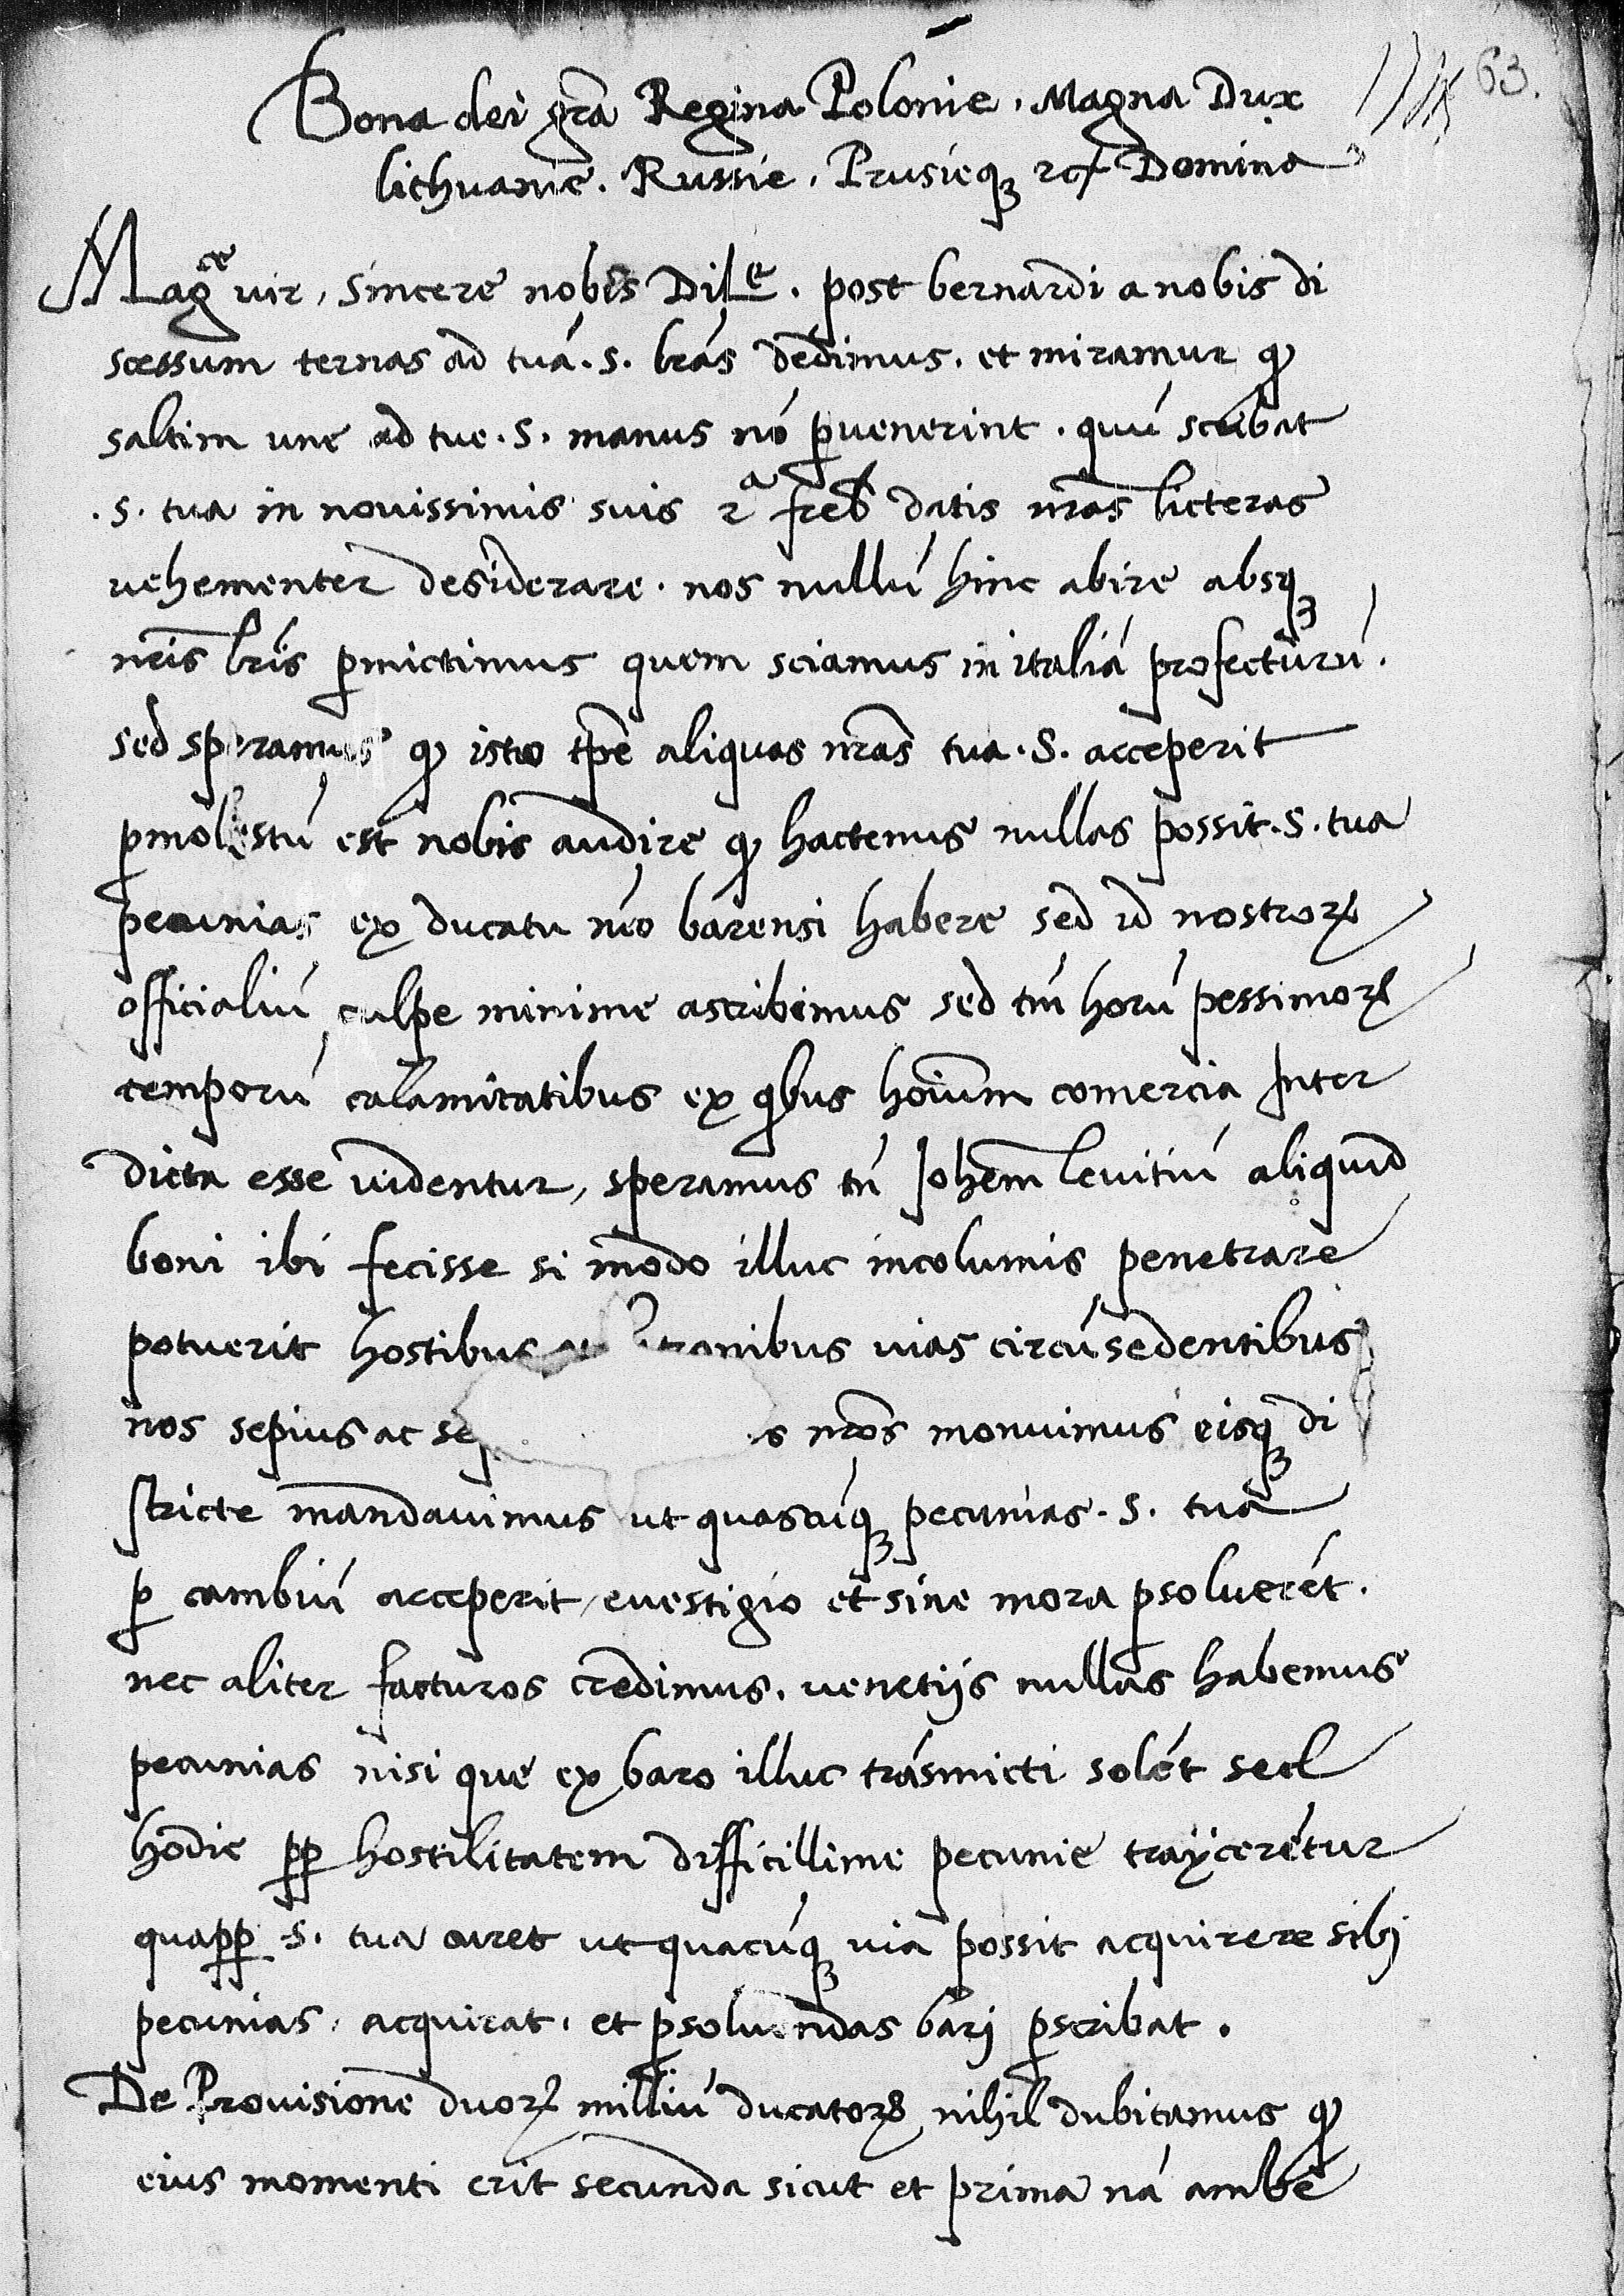 63.
Bona dei gra̅ Regina Polonie. Magna Dux
lithuanie. Russie. Prusieqꝫ ⁊cͭ Domina
Magce vir, sincere nobis Dile. post bernardi a nobis di
scessum ternas ad tuá. S. lrás dedimus. et miramur ꝙ
saltim une ad tue. S. manus nó ꝑuenerint. quú scribat
.S. tua in nouissimis suis 2a freb datis nras̅ licteras
vehementer desiderare. nos nullú hinc abire absqꝫ
nris̅ lris̅ ꝑmictimus quem sciamus in italiá profecturú.
sed speramus ꝙ isto tp̅re aliquas nras̅ tua. S. acceperit
ꝑmolestú est nobis audire ꝙ hactenus nullas possit. S. tua
pecunias ex ducatu nr̅o barensi habere sed id nostroꝝ
officialiú culpe minime ascribimus sed tm̅ horú pessimoꝝ
temporú calamitatibus ex qbus hoium̅ comercia Inter
dicta esse videntur, speramus tń Johem̅ levitiú aliquid
boni ibi fecisse si modo illuc incolumis penetrare
potuerit hostibus tronibus vias circúsedentibus
nos sepius ac se s nros̅ monuimus eisqꝫ di
stricte mandauimus ut quascúqꝫ pecunias. S. tua
ꝑ cambiú acceperit, evestigio et sine mora ꝑsoluerét.
nec aliter facturos credimus. venetijs nullas habemus
pecunias nisi que ex baro illuc trásmicti solét sed
hodie ꝓꝓ hostilitatem difficillime pecunie traijcerétur
quaꝓꝓ S. tua curet ut quacúqꝫ via possit acquirere sibj
pecunias, acquirat, et ꝑsoluendas barj ꝑscribat.
De Provisione duoꝝ milliú ducatoꝝ nihil dubitamus ꝙ
eius momenti erit secunda sicut et prima ná ambe